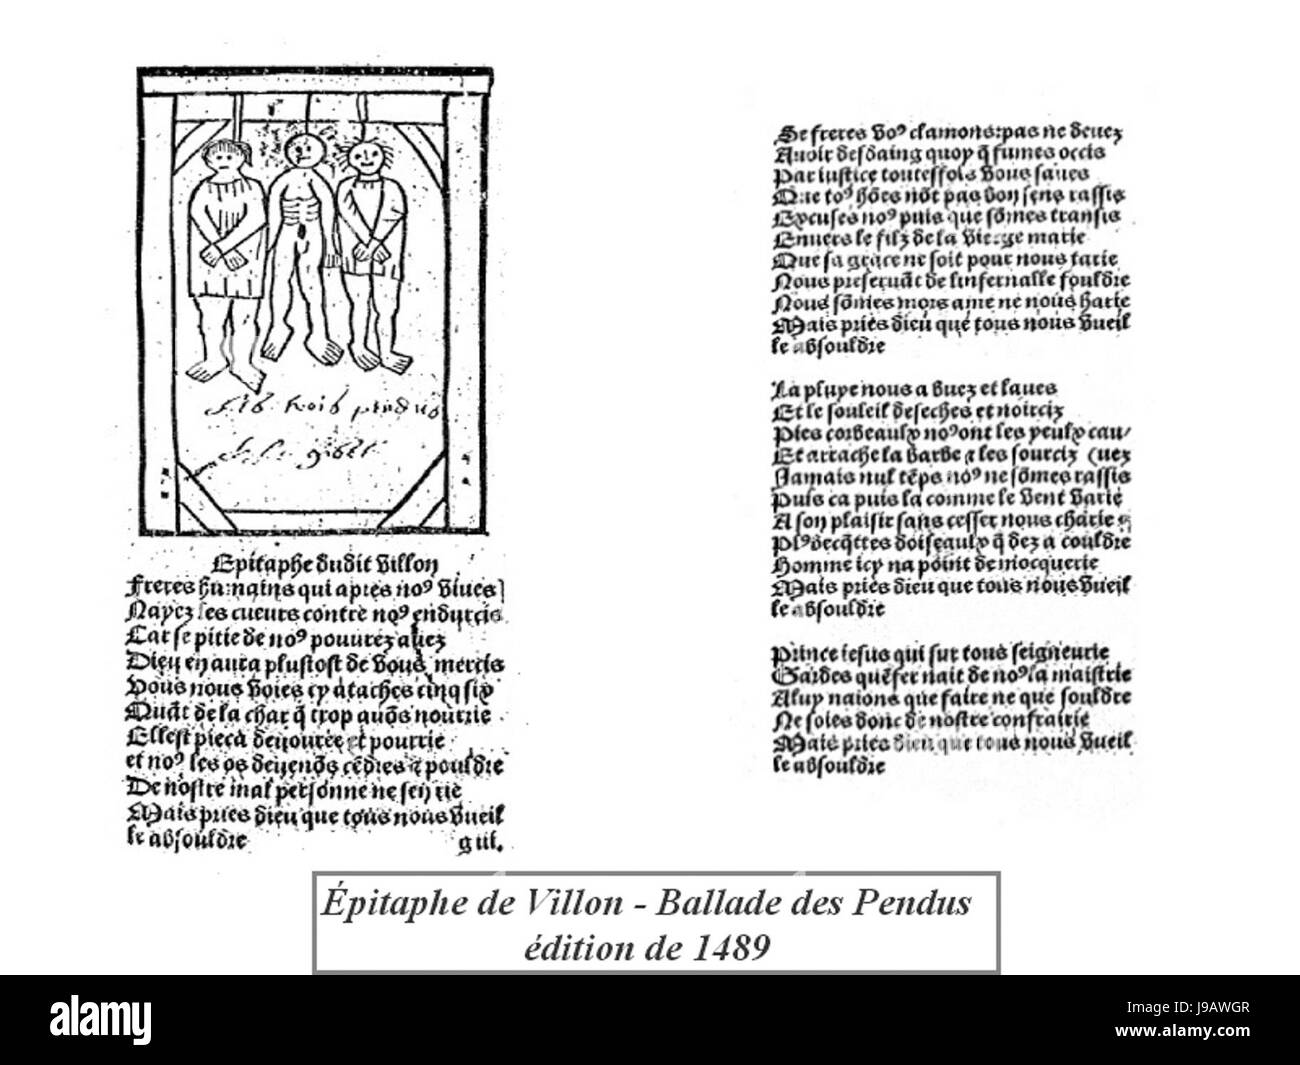 Epitaphe dudit villon
Freres humains qui apres noꝰ viues
Nayez les cueurs contre noꝰ endurcis
Car se pitie de noꝰ pouurez auez
Dieu en aura plustost de vous mercis
Vous nous voies cy ataches cinq six
Quāt de la char q̄ trop auōs nourrie
Ellest pieca deuouree et pourrie
et noꝰ les os deuenōs cēdres ⁊ pouldre
De nostre mal personne ne sen rie
Mais pries dieu que tous nous vueil
le absouldre gui.
Se freres voꝰ clamons: pas ne deuez
Auoir desdaing quoy q̄ fumes occis
Par iustice toutesfois vous saues
Que toꝰ hōes nōt pas bon sens rassis
Excuses noꝰ puis que sōmes transis
Enuers le filz de la vierge marie
Que sa grace ne soit pour nous tarie
Nous preseruāt de linfernalle fouldre
Nous sōmes mors ame ne nous harie
Mais pries dieu que tous nous vueil
le absouldre
La pluye nous a buez et laues
Et le souleil deseches et noirciz
Pies corbeaulx noꝰ ont les yeulx cau/
Et arrache la barbe ⁊ les sourciz (uez
Jamais nul tēps noꝰ ne sōmes rassis
Puis ca puis la comme le vent varie
A son plaisir sans cesser nous charie
Plꝰ becq̄ttes doiseaulx q̄ dez a couldre
Homme icy na point de mocquerie
Mais pries dieu que tous nous vueil
le absouldre
Prince iesus qui sur tous seigneurie
Gardes quēfer nait de noꝰ la maistrie
A luy naions que faire ne que souldre
Ne soies donc de nostre confrairie
Mais pries dieu que tous nous vueil
le absouldre
Épitaphe de Villon - Ballade des Pendus
édition de 1489
alamy
Image ID: J9AWGR
www.alamy.com